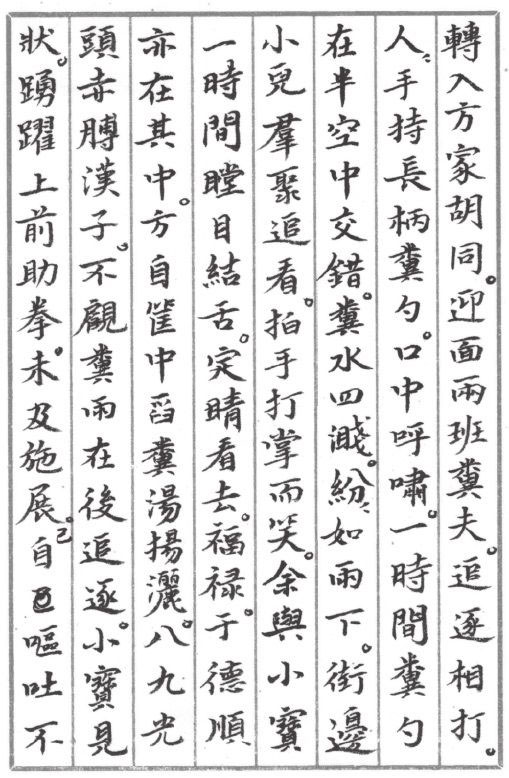 轉入方家胡同。迎面兩班糞夫。追逐相打。
人〻手持長柄糞勺。口中呼嘯。一時間糞勺
在半空中交錯。糞水四濺。紛〻如雨下。街邊
小兒羣聚追看。拍手打掌而笑。余與小寶
一時間瞠目結舌。定睛看去。福祿于德順
亦在其中。方自筐中舀糞湯揚灑。八九光
頭赤膊漢子。不顧糞雨在後追逐。小寶見
狀。踴躍上前助拳。未及施展。自己已嘔吐不